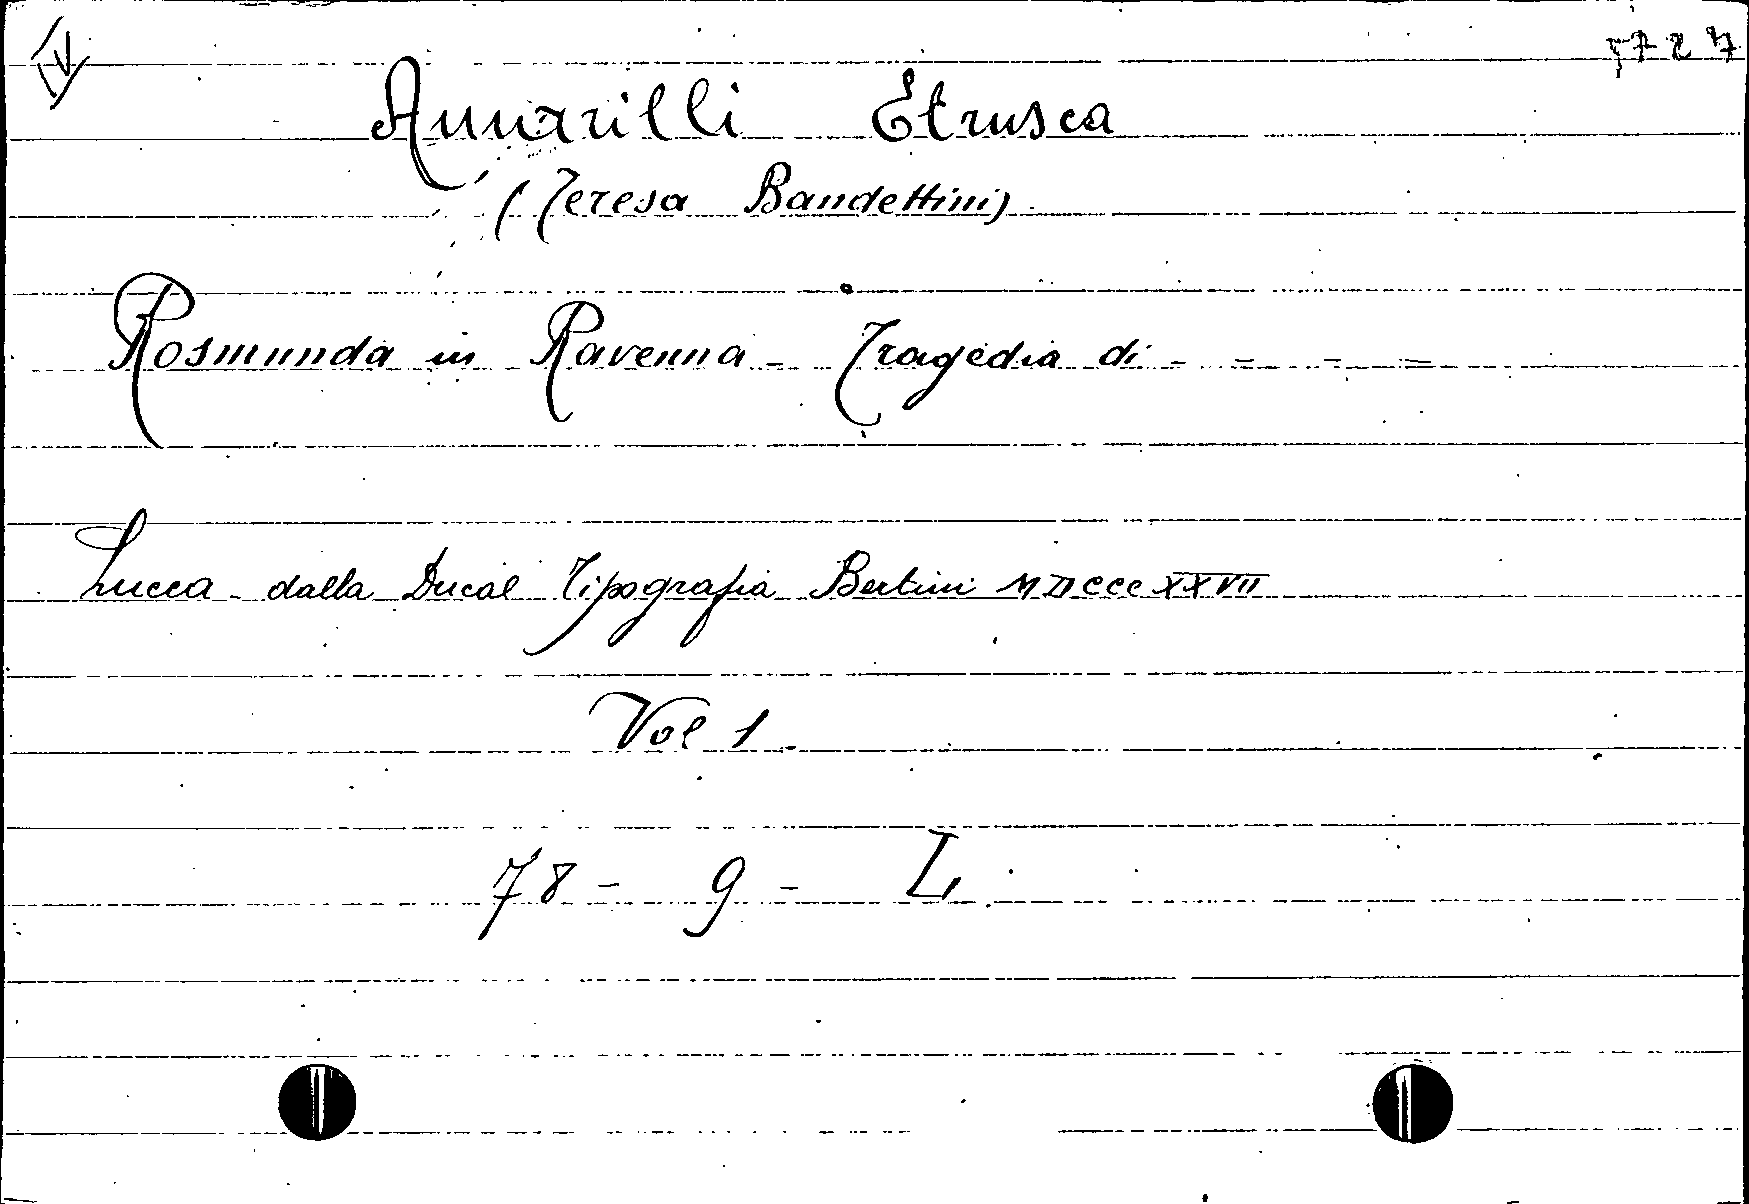 5727
Amarilli Etrusca
(Teresa Bandettini)
Rosmunda in Ravenna - Tragedia di - = - =
Lucca - dalla Ducal Tipografia Bertini MDCCCXXVII
Vol 1.
78 - 9 - L.